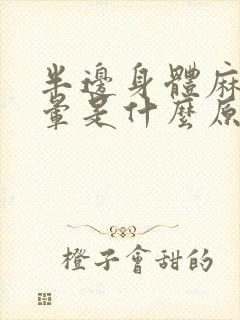 半邊身體麻
暈是什麼原
橙子會甜的